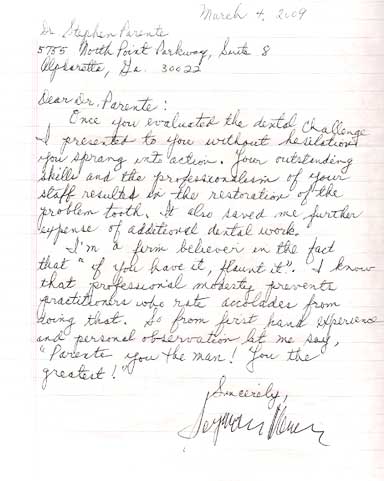 March 4, 2009
Dr. Stephen Parente
5755 North Point Parkway, Suite 8
Alpharetta, Ga. 30022
Dear Dr. Parente:
Once you evaluated the dental challenge
I presented to you without hesitation
you sprang into action. Your outstanding
skills and the professionalism of your
staff resulted in the restoration of the
problem tooth. It also saved me further
expense of additional dental work.
I'm a firm believer in the fact
that "if you have it, flaunt it". I know
that professional modesty prevents
practitioners who rate accolades from
doing that. So from first hand experience
and personal observation let me say,
"Parente you the man! You the
greatest!"
Sincerely,
Seymour